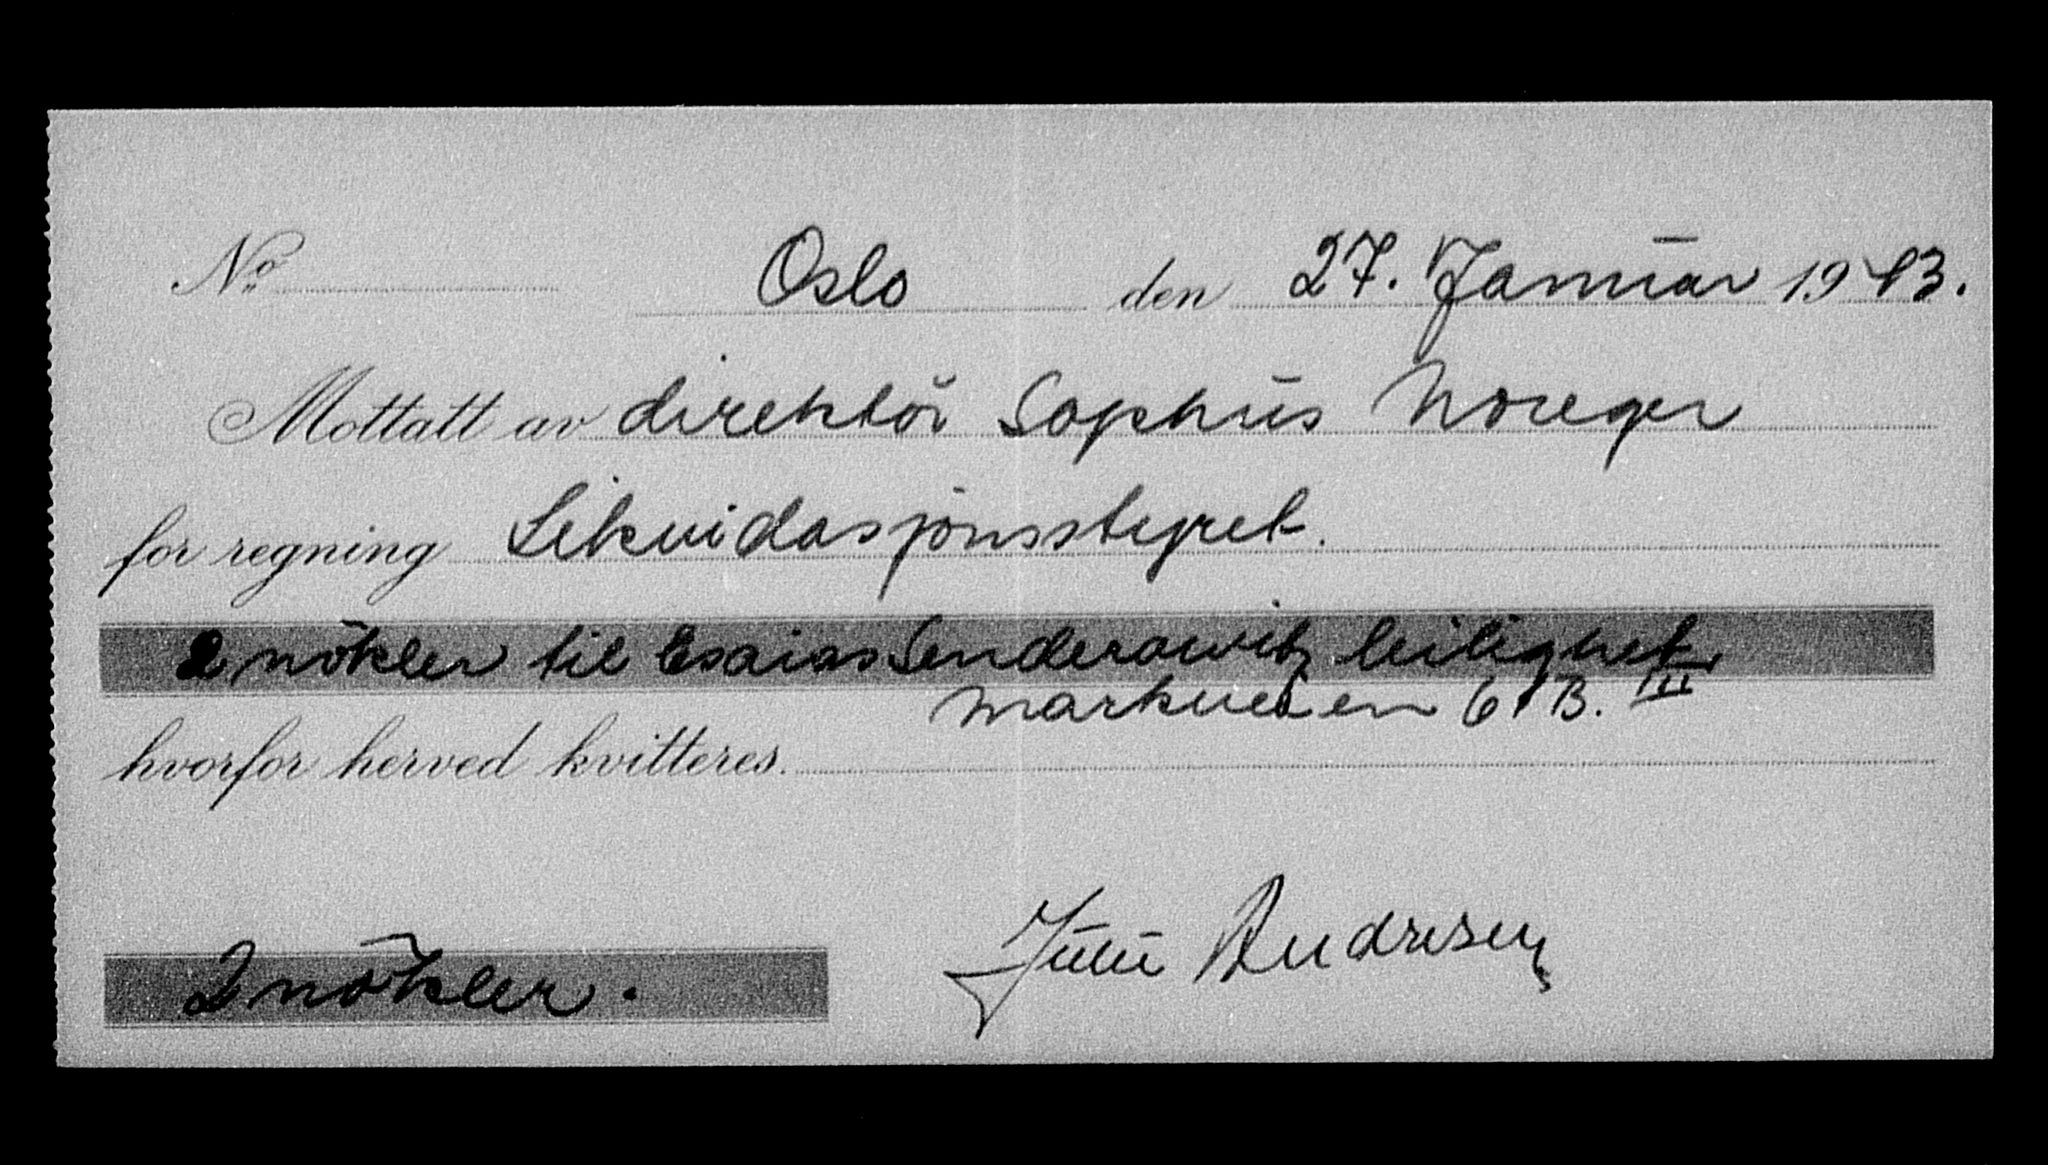 No. Oslo den 27. Januar 1943.
Mottatt av direktör Sophus Noreger
for regning Likvidasjonsstyret.
2 nökler til Esaias Senderowitz leilighet,
Markveien 6 B. III
hvorfor herved kvitteres.
2 nökler. Andresen